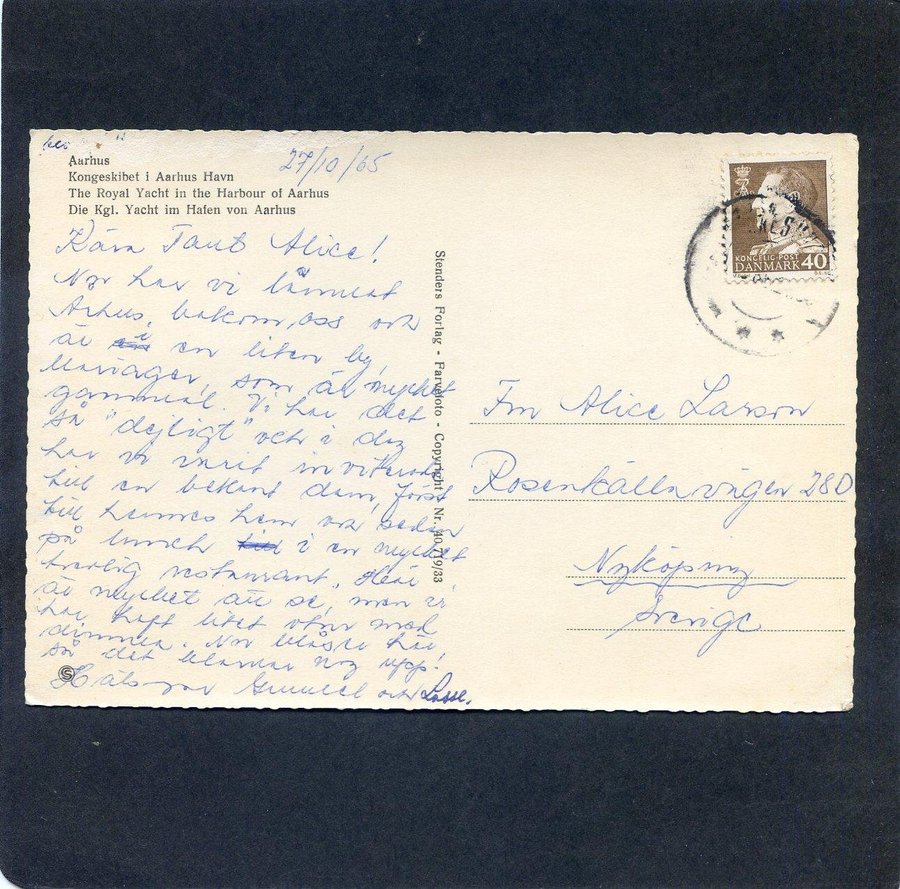 27/10/65
Aarhus
Kongeskibet i Aarhus Havn
The Royal Yacht in the Harbour of Aarhus
Die Kgl. Yacht im Hafen von Aarhus
Kära Tant Alice!
Nu har vi lämnat
Århus, bakom oss och
är i en liten by,
Mariager, som är mycket
gammal. Vi har det
så "dejligt" och i dag
har vi varit
till en bekant dam, först
till hennes hem och sedan
på lunch i en mycket
trevlig restaurant. Här
är mycket att se, men vi
har haft litet otur med
dimma. Nu blåste här
så det klarnar nog upp!
Hälsar Gunnel och Lasse.
Stenders Forlag - Farvefoto - Copyright - Nr. 40 719/33
KONGELIG POST
DANMARK 40
Fru Alice Larson
Rosenkällavägen 28D
Nyköping
Sverige